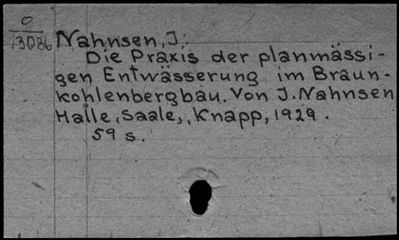 O
13086
Nahnsen, J.:
Die Praxis der planmässi-
gen Entwässerung im Braun-
kohlenbergbau. Von J. Nahnsen
Halle, Saale, Knapp, 1929.
59 s.